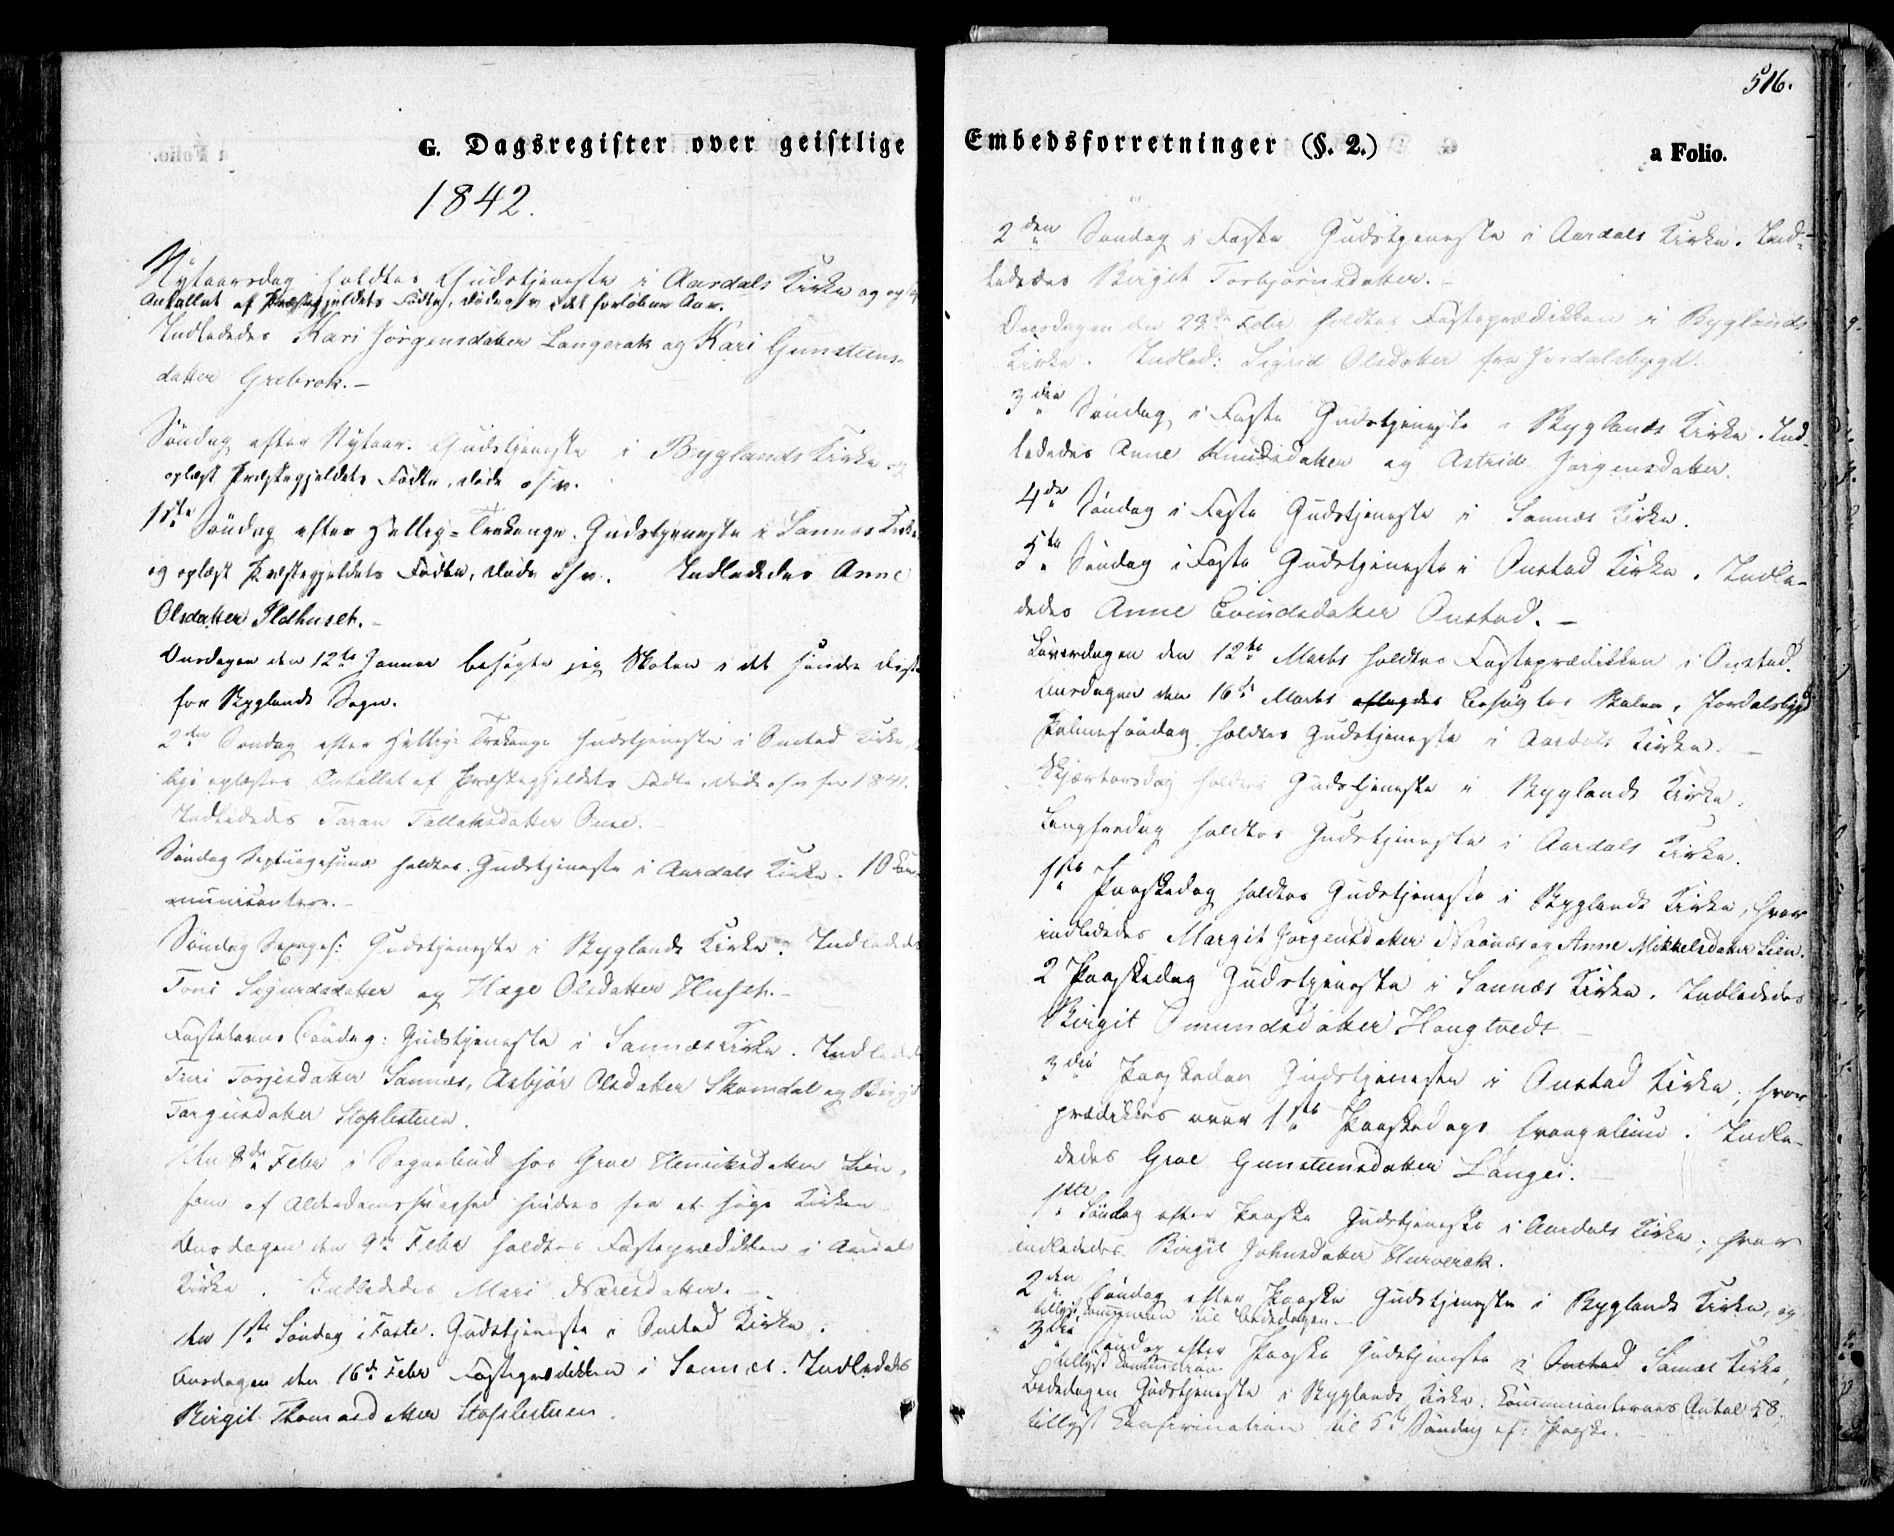 G. Dagsregister over geistlige
1842.
Nytaarsdag holdtes Gudstjeneste i Aardals Kirke og opl
Antallet af Præstegjeldets Fødte, døde osv i det forløbne Aar.
Indlededes Kari Jørgensdatter Langerak og Kari Gunsteens-
datter Grebrok.-
Søndag efter Nytaar. Gudstjeneste i Byglands Kirke og
oplæst Præstegjeldets Fødte, døde osv.
1ste Søndag efter Hellig-Trekonge. Gudstjeneste i Sannes Kirke
og oplæst Præstegjeldets Fødte, døde osv. Indlededes Anne
Olsdatter Ildhuset.-
Onsdagen den 12te Januar besøgte jeg Skolen i det søndre
for Byglands Sogn.
2den Søndag efter Hellig-Trekonge Gudstjeneste i Onstad Kirke,
oplæstes Antallet af Præstegjeldets Fødte, døde osv for 1841.
Indlededes Taran Tallaksdatter Ouse.-
Søndag Septuagesima holdtes Gudstjeneste i Aardals Kirke. 10 Com-
municantere.-
Søndag Sexages: Gudstjeneste i Byglands Kirke. Indlededes
Toni Sigurdsdatter og Hæge Olsdatter Huset.-
Fastelavns Søndag: Gudstjeneste i Sannes Kirke. Indleded
Turi Torjesdatter Sannes, Asbjør Olsdatter Skomdal og Birgit
Targusdatter Stoplestuen.
Den 8de Febr i Sognebud hos Groe Henriksdatter Lien,
som af Alderdomssvaghed hindres for at søge Kirken
Onsdagen den 9de Febr holdtes Fasteprædikken i Aardals
Kirke. Indlededes Mari Næresdatter.-
den 1ste Søndag i Faste. Gudstjeneste i Onstad Kirke.
Onsdagen den 16de Febr Fasteprædikken i Sannes. Indlededes
Birgit Thomasdatter Stoplestuen.
516.
Embedsforretninger (§. 2.)
a Folio.
2den Søndag i Faste Gudstjeneste i Aardals Kirke. Ind-
lededes Birgit Torbjørnsdatter.-
Onsdagen den 23de Febr holdtes Fasteprædikken i Byglands
Kirke. Indled: Sigrid Olsdatter fra Jordalsbygd.
3die Søndag i Faste Gudstjeneste i Byglands Kirke. Ind-
lededes Anne Knudsdatter og Astrid Jørgensdatter.
4de Søndag i Faste Gudstjeneste i Sannes Kirke.
5te Søndag i Faste Gudstjeneste i Onstad Kirke. Indle-
dedes Anne Evindsdatter Onstad.-
Løverdagen den 12te Marts holdtes Fasteprædikken i Onstad.
Onsdagen den 16de Marts aflagdes besøgtes Skolen i Jordalsbygd
Palmesøndag holdtes Gudstjeneste i Aardals Kirke.-
Skjærtorsdag holdtes Gudstjeneste i Byglands Kirke.
Langfredag holdtes Gudstjeneste i Aardals Kirke.
1ste Paaskedag holdtes Gudstjeneste i Byglands Kirke, hvor
indlededes Margit Jørgensdatter Naanes og Anne Mikkelsdatter Lien.
2 Paaskedag Gudstjeneste i Sannes Kirke. Indlededes
Birgit Omundsdatter Hougtvedt-
3die Paaskedag Gudstjeneste i Onstad Kirke, hvor
prædikkes over 1ste Paaskedags Evangelium. Indle-
dedes Groe Gunsteensdatter Langei.-
1ste Søndag efter Paaske Gudstjeneste i Aardals Kirke, hvor
indlededes Birgit Johnsdatter Hurverak.
2den Søndag efter Paaske Gudstjeneste i Byglands Kirke, og
tillyst Communion til Bededagen.-
3die Søndag efter Paaske Gudstjeneste i Onstad Sannes Kirke,
tillyst Communion
Bededagen Gudstjeneste i Byglands Kirke. Communicanternes Antal 58.
tillyst Confirmation til 5te Søndag ef: Paaske.